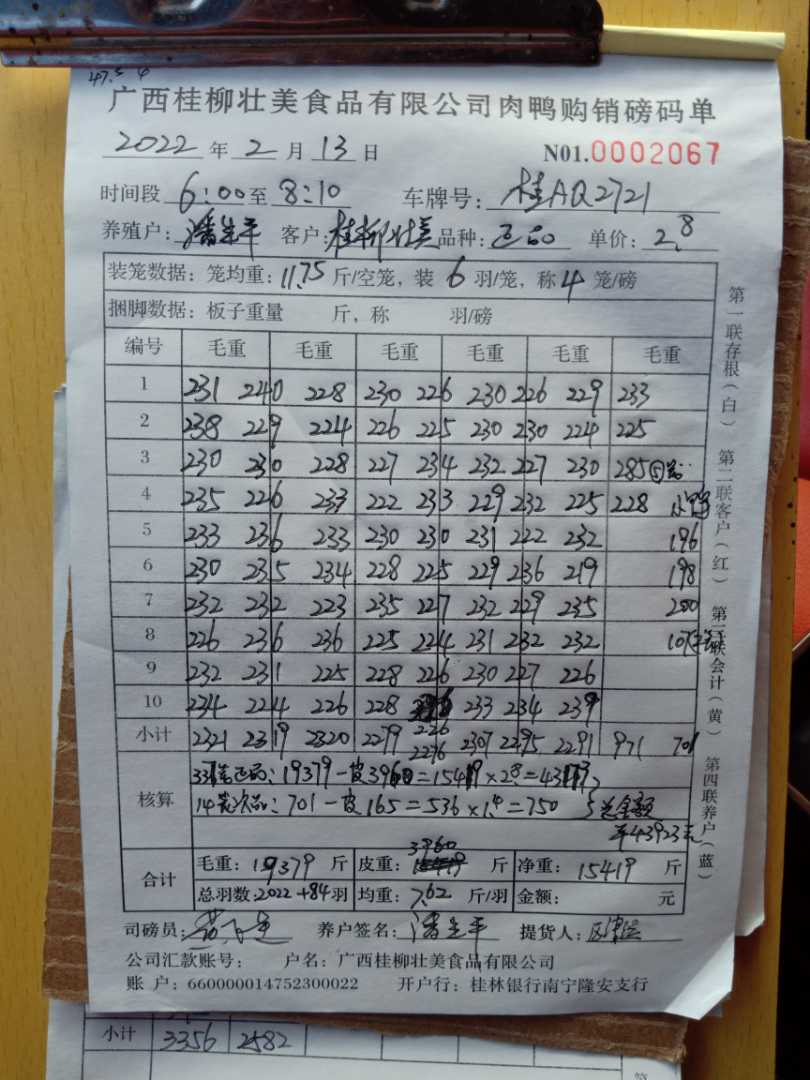 47.5 4
广西桂柳壮美食品有限公司肉鸭购销磅码单
2022 年 2 月 13 日 N01.0002067
时间段 6:00 至 8:10 车牌号: 桂AQ2721
养殖户: 潘生平 客户: 桂柳壮美 品种: 正品 单价: 2.8
装笼数据: 笼均重: 11.75 斤/空笼, 装 6 羽/笼, 称 4 笼/磅
捆脚数据: 板子重量 斤, 称 羽/磅
编号 毛重 毛重 毛重 毛重 毛重 毛重
1 231 240 228 230 226 230 226 229 233
2 238 229 224 226 225 230 230 224 225
3 230 230 228 227 234 232 227 230 285 ⑤笼
4 235 226 233 222 233 229 232 225 228 小鸭
5 233 236 233 230 230 231 222 232 196
6 230 235 234 228 225 229 236 219 198
7 232 232 223 235 227 232 229 235 200
8 226 236 236 225 224 231 232 232 107
9 232 231 225 228 226 230 227 226
10 234 224 226 228 226 233 234 239
小计 2321 2319 2320 2279 2276 2307 2295 2291 971 701
核算
337笼正品: 19379-皮3960=15419×2.8=43173
14笼次品: 701-皮165=536×1.4=750 总金额
平43923元
合计
毛重: 19379 斤 皮重: 3960 斤 净重: 15419 斤
总羽数: 2022+84 羽 均重: 7.62 斤/羽 金额: 元
司磅员: 养户签名: 潘生平 提货人:
公司汇款账号: 户名: 广西桂柳壮美食品有限公司
账 户: 660000014752300022 开户行: 桂林银行南宁隆安支行
第一联存根(白) 第二联客户(红) 第三联会计(黄) 第四联养户(蓝)
小计 3356 2582
第